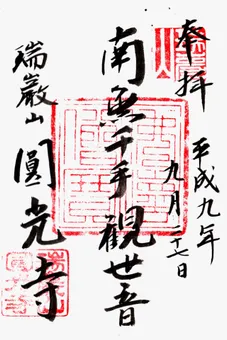 奉拝
平成九年
九月二十七日
南無千手觀世音
瑞巌山
圓光寺